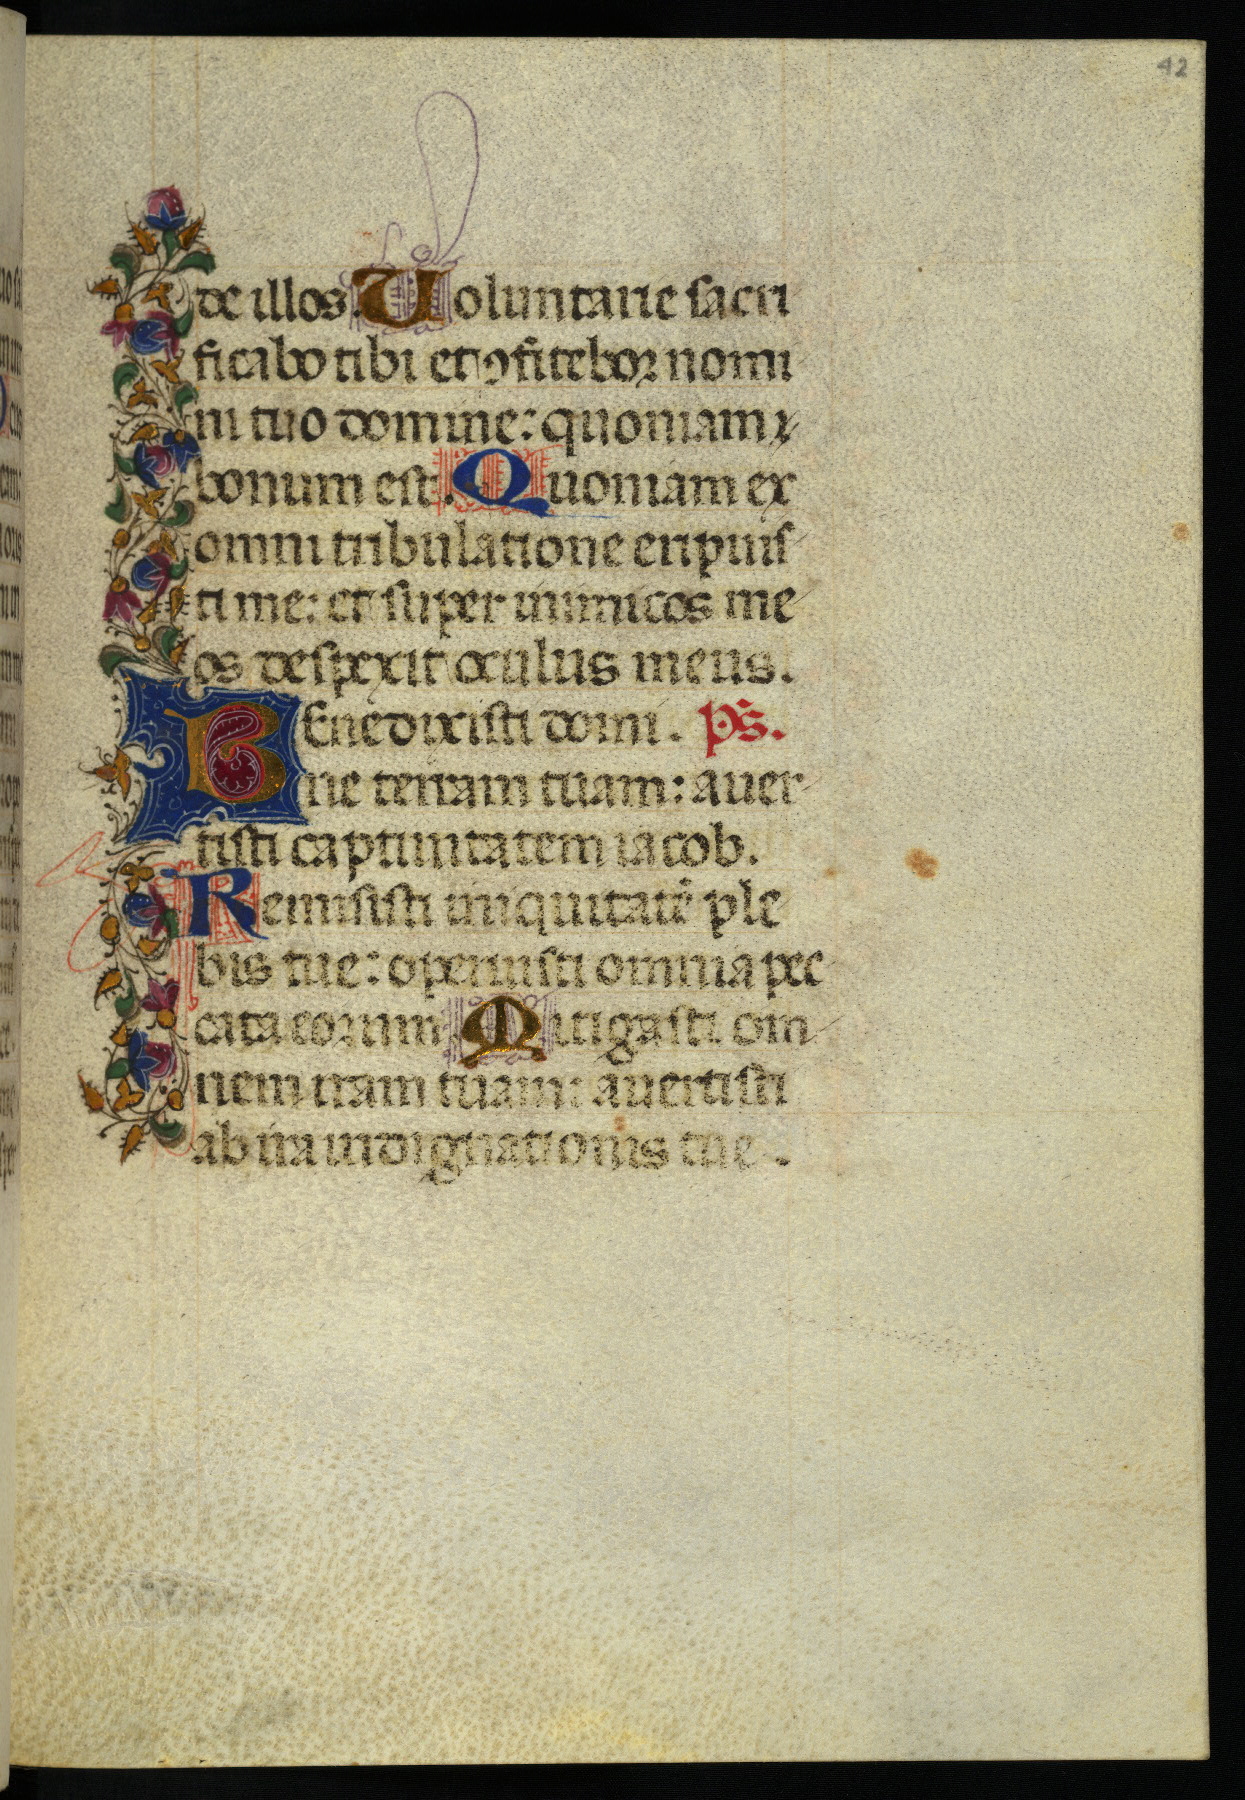 42
de illos. Voluntarie sacri
ficabo tibi et ꝯfitebor nomi
ni tuo domine: quoniam
bonum est. Quoniam ex
omni tribulatione eripuis
ti me: et super inimicos me
os despexit oculus meus.
BEnedixisti domi. ps̄.
ne terram tuam: auer
tisti captiuitatem iacob.
Remisisti iniquitatē ple
bis tue: operuisti omnia pec
cata eorum. Mitigasti om
nem iram tuam: auertisti
ab ira indignationis tue.